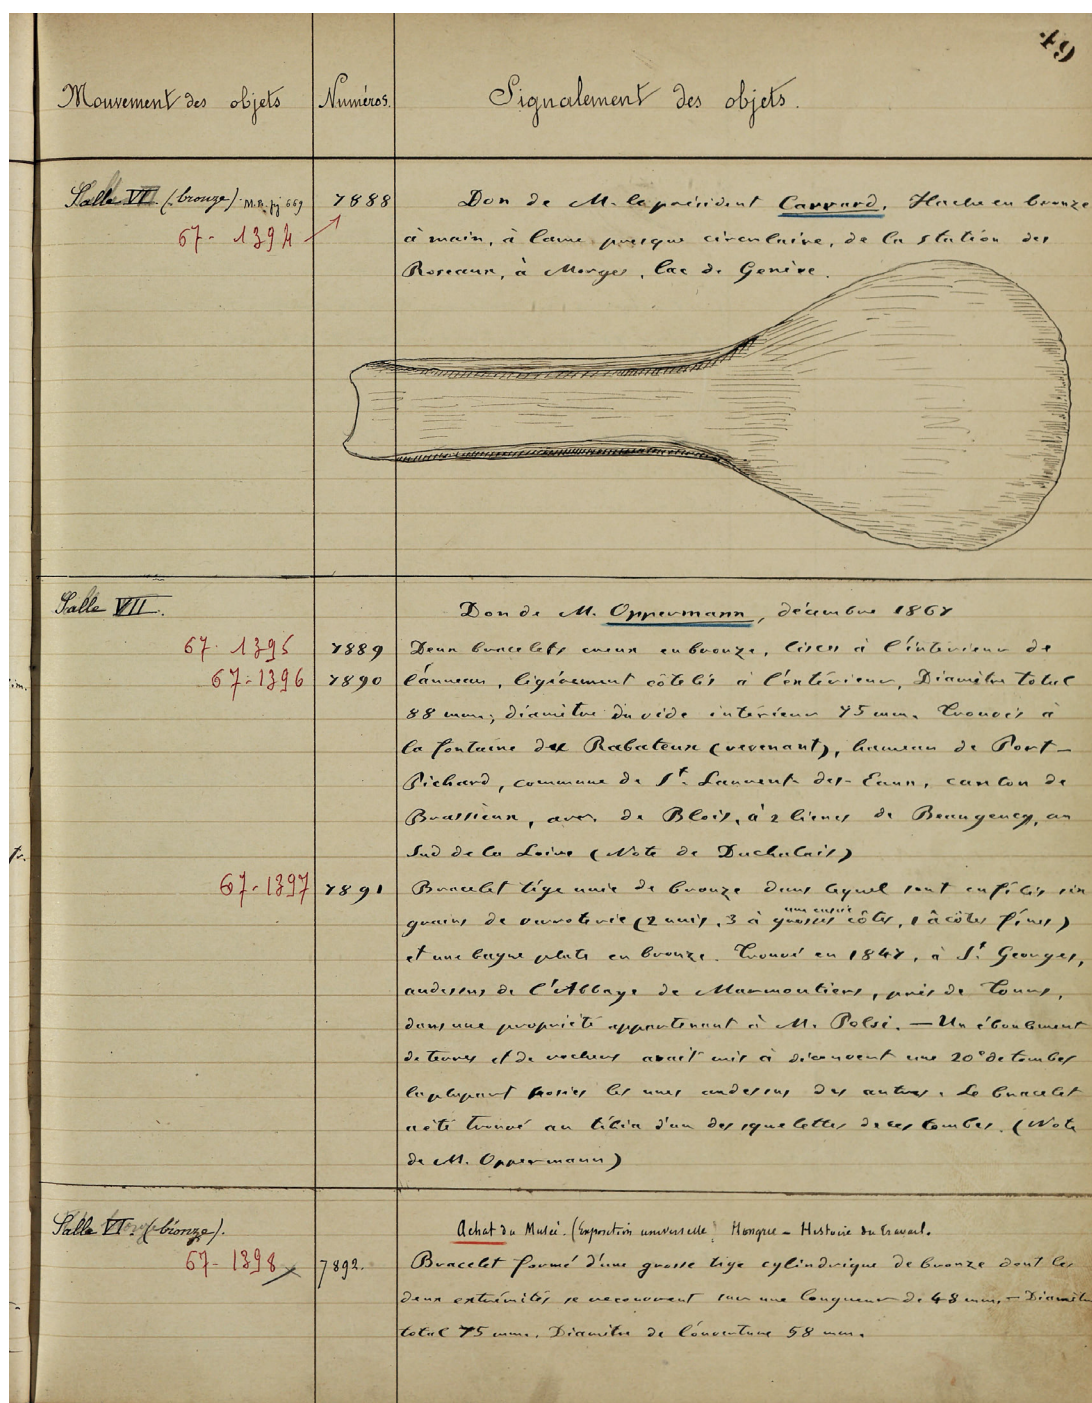 49
Mouvement des objets Numéros. Signalement des objets.
Salle VI (bronze). M.B. pg 669 7888 Don de M. le président Carrard. Hache en bronze
67- 1394 à main, à lame presque circulaire, de la station des
Roseaux, à Morges, lac de Genève.
Salle VII. Don de M. Oppermann, décembre 1867
67- 1395 7889 Deux bracelets creux en bronze, lisses à l'intérieur de
67-1396 7890 l'anneau, légèrement côtelés à l'extérieur, Diamètre total
88 mm; diamètre du vide intérieur 75 mm. Trouvés à
la fontaine du Rabateux (revenant), hameau de Port-
Pichard, commune de St. Laurent-des-Eaux, canton de
Brassieux, arr. de Blois, à 2 lieues de Beaugency, au
Sud de la Loire (Note de Duchalais)
67-1397 7891 Bracelet tige unie de bronze dans lequel sont enfilés six
grains de verroterie (2 unis, 3 à grosses côtes, 1 à côtes fines)
et une bague plate en bronze. Trouvé en 1847, à St. Georges,
audessus de l'Abbaye de Marmoutiers, près de Tours,
dans une propriété appartenant à M. Polsé. — Un éboulement
de terres et de rochers avait mis à découvert une 20e de tombes
la plupart posées les unes audessus des autres. Le bracelet
a été trouvé au tibia d'un des squelettes de ces tombes. (Note
de M. Oppermann)
Salle VI. (bronze). Achat du Musée. (Exposition universelle) Hongrie - Histoire du travail.
67- 1398 7892. Bracelet formé d'une grosse tige cylindrique de bronze dont les
deux extrémités se recouvrent sur une longueur de 48 mm. — Diamètre
total 75 mm. Diamètre de l'ouverture 58 mm.